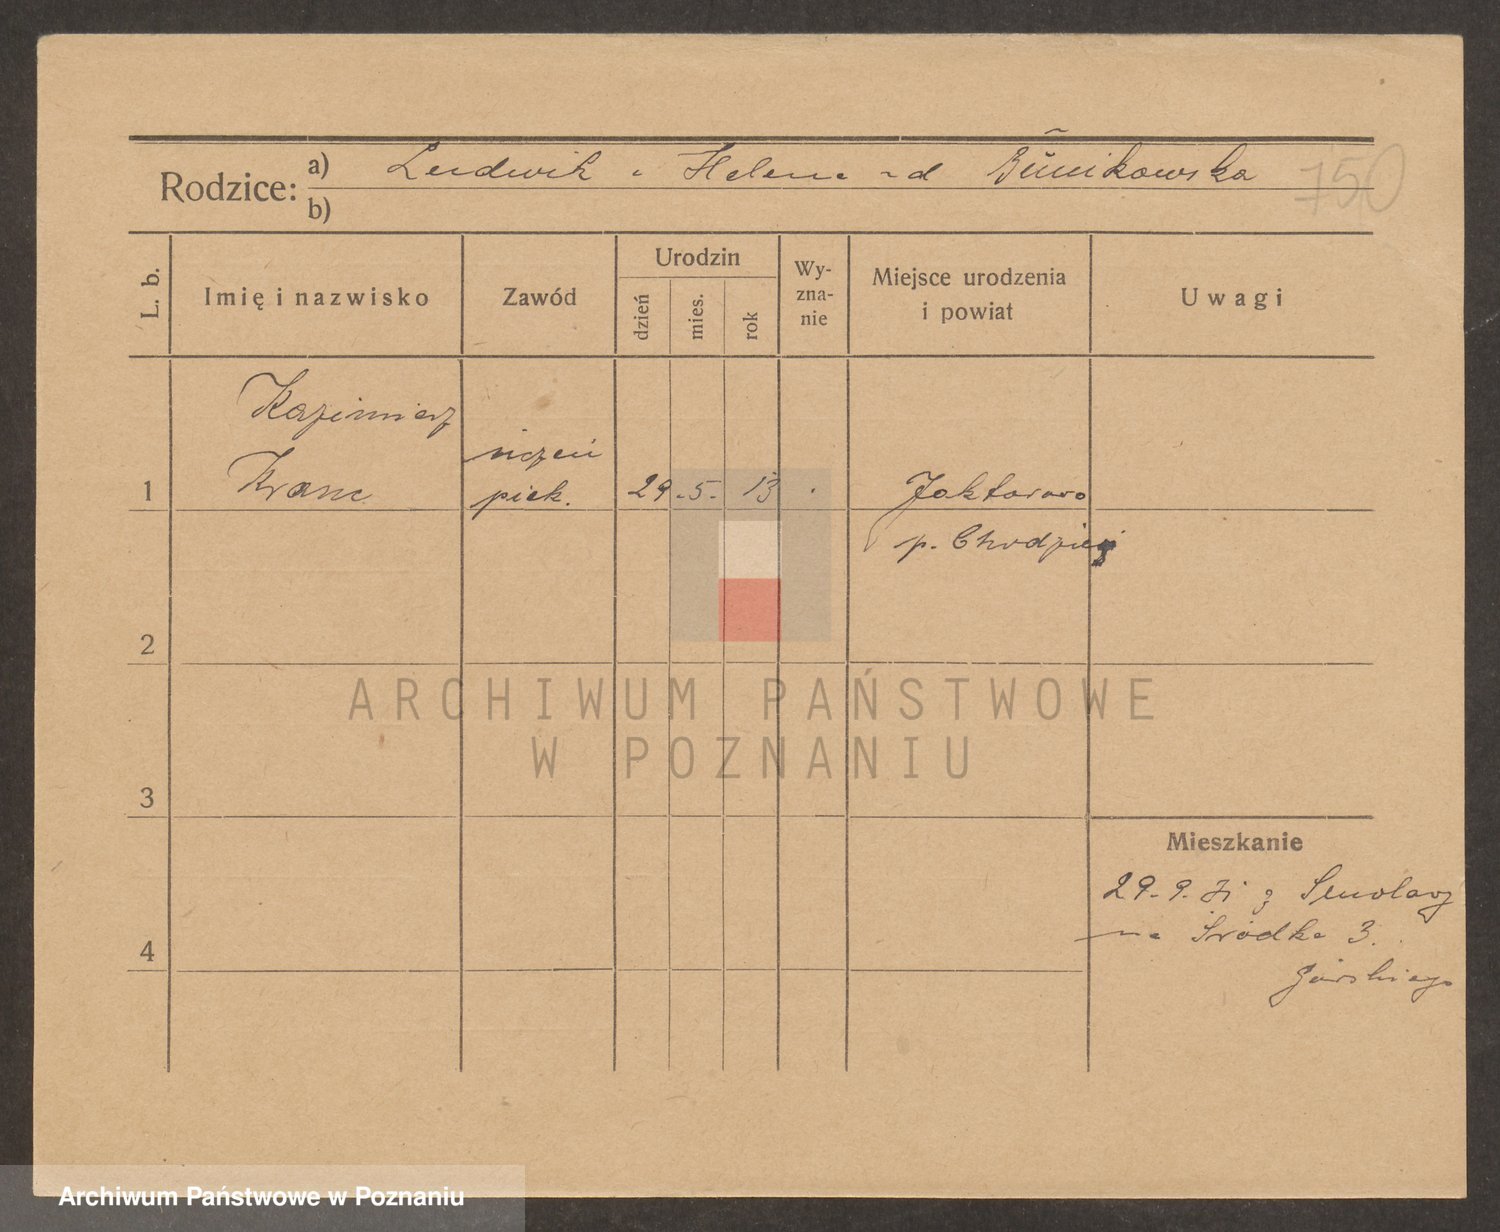 Rodzice: a) Ludwik i Helena
b)
750
L. b.
Imię i nazwisko
Zawód
Urodzin
dzień
mies.
rok
Wy-
zna-
nie
Miejsce urodzenia
i powiat
Uwagi
Kazimierz
Kranc
uczeń
piek.
29.
5.
13
Jaktorowo
p. Chodzież
1
2
3
4
ARCHIWUM PAŃSTWOWE
W POZNANIU
Mieszkanie
29.9. z Smolary
na Śródka 3.
Górskiego
Archiwum Państwowe w Poznaniu